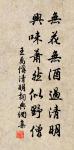 無花無酒過清明
興味蕭然似野僧
王禹偁清明詞與調案